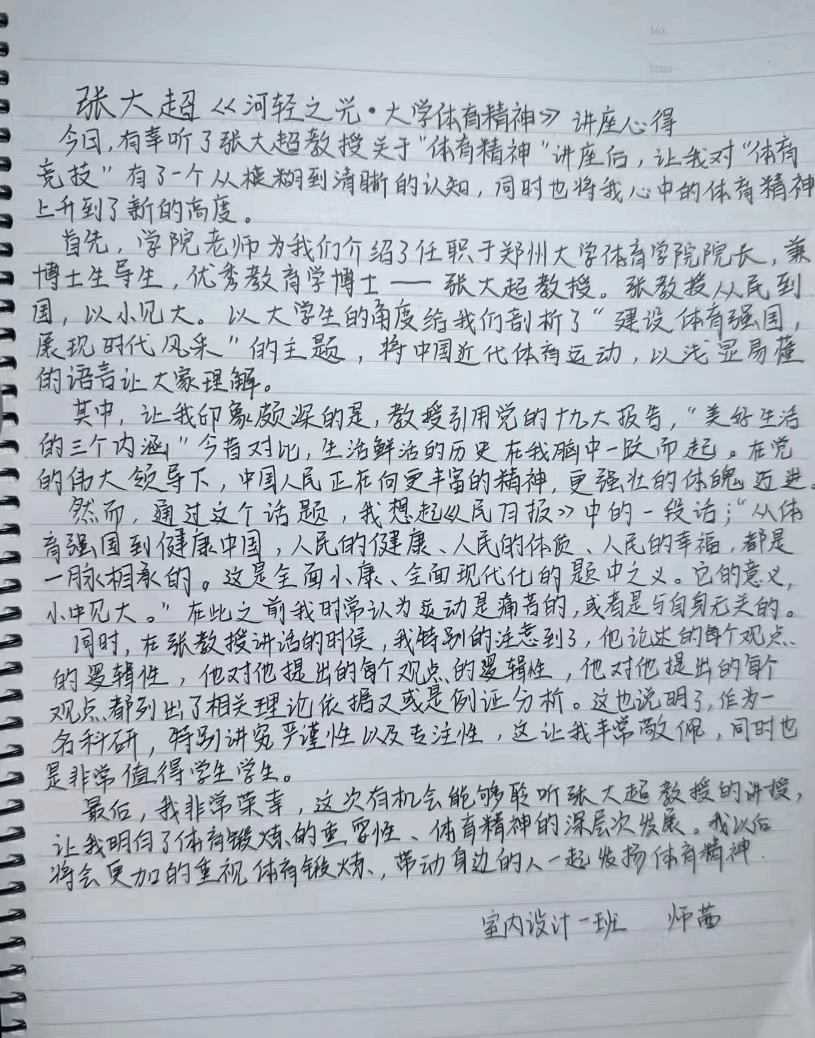 No.
Date
张大超《河轻之光·大学体育精神》讲座心得
今日,有幸听了张大超教授关于“体育精神”讲座后,让我对“体育
竞技”有了一个从模糊到清晰的认知,同时也将我心中的体育精神
上升到了新的高度。
首先,学院老师为我们介绍了任职于郑州大学体育学院院长,兼
博士生导生,优秀教育学博士——张大超教授。张教授从民到
国,以小见大。以大学生的角度给我们剖析了“建设体育强国,
展现时代风采”的主题,将中国近代体育运动,以浅显易懂
的语言让大家理解。
其中,让我印象颇深的是,教授引用党的十九大报告,“美好生活
的三个内涵”今昔对比,生活鲜活的历史在我脑中一跃而起。在党
的伟大领导下,中国人民正在向更丰富的精神,更强壮的体魄迈进。
然而,通过这个话题,我想起《人民日报》中的一段话;“从体
育强国到健康中国,人民的健康、人民的体质、人民的幸福,都是
一脉相承的。这是全面小康、全面现代化的题中之义。它的意义,
小中见大。”在此之前我时常认为运动是痛苦的,或者是与自身无关的。
同时,在张教授讲话的时候,我特别的注意到了,他论述的每个观点
的逻辑性,他对他提出的每个观点的逻辑性,他对他提出的每个
观点都列出了相关理论依据又或是例证分析。这也说明了,作为一
名科研,特别讲究严谨性以及专注性,这让我非常敬佩,同时也
是非常值得学生学生。
最后,我非常荣幸,这次有机会能够聆听张大超教授的讲授,
让我明白了体育锻炼的重要性、体育精神的深层次发展。我以后
将会更加的重视体育锻炼,带动身边的人一起发扬体育精神.
室内设计一班 师茜